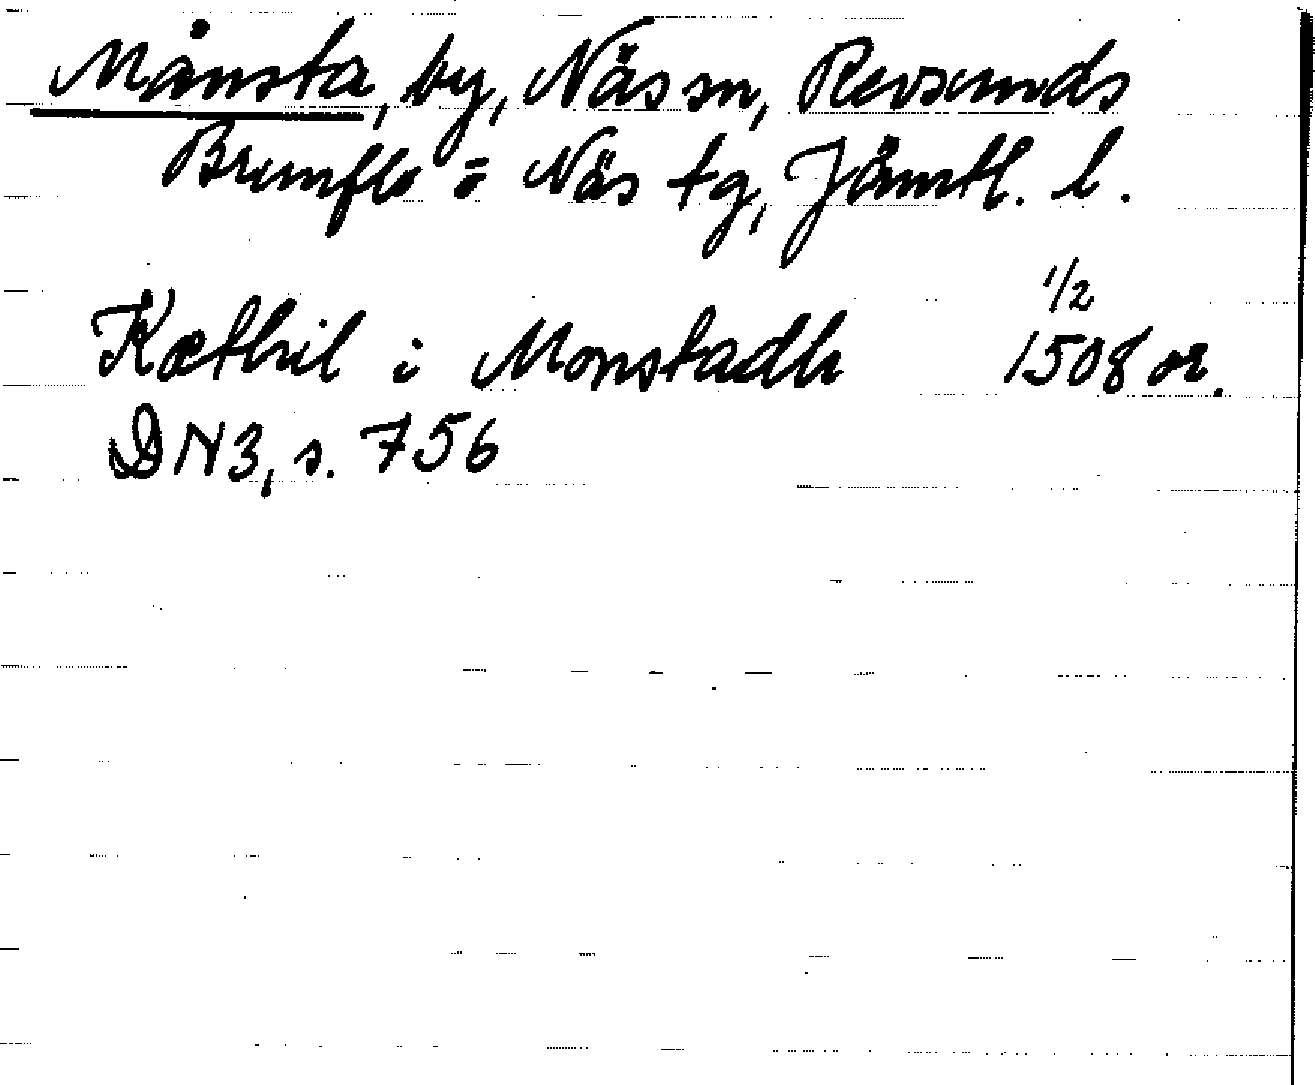 Månsta, by, Näs sn, Revsunds
Brunflo o Näs tg, Jämtl. l.
1/2
Kæthil i Monstadh 1508 or.
DN3, s. 756